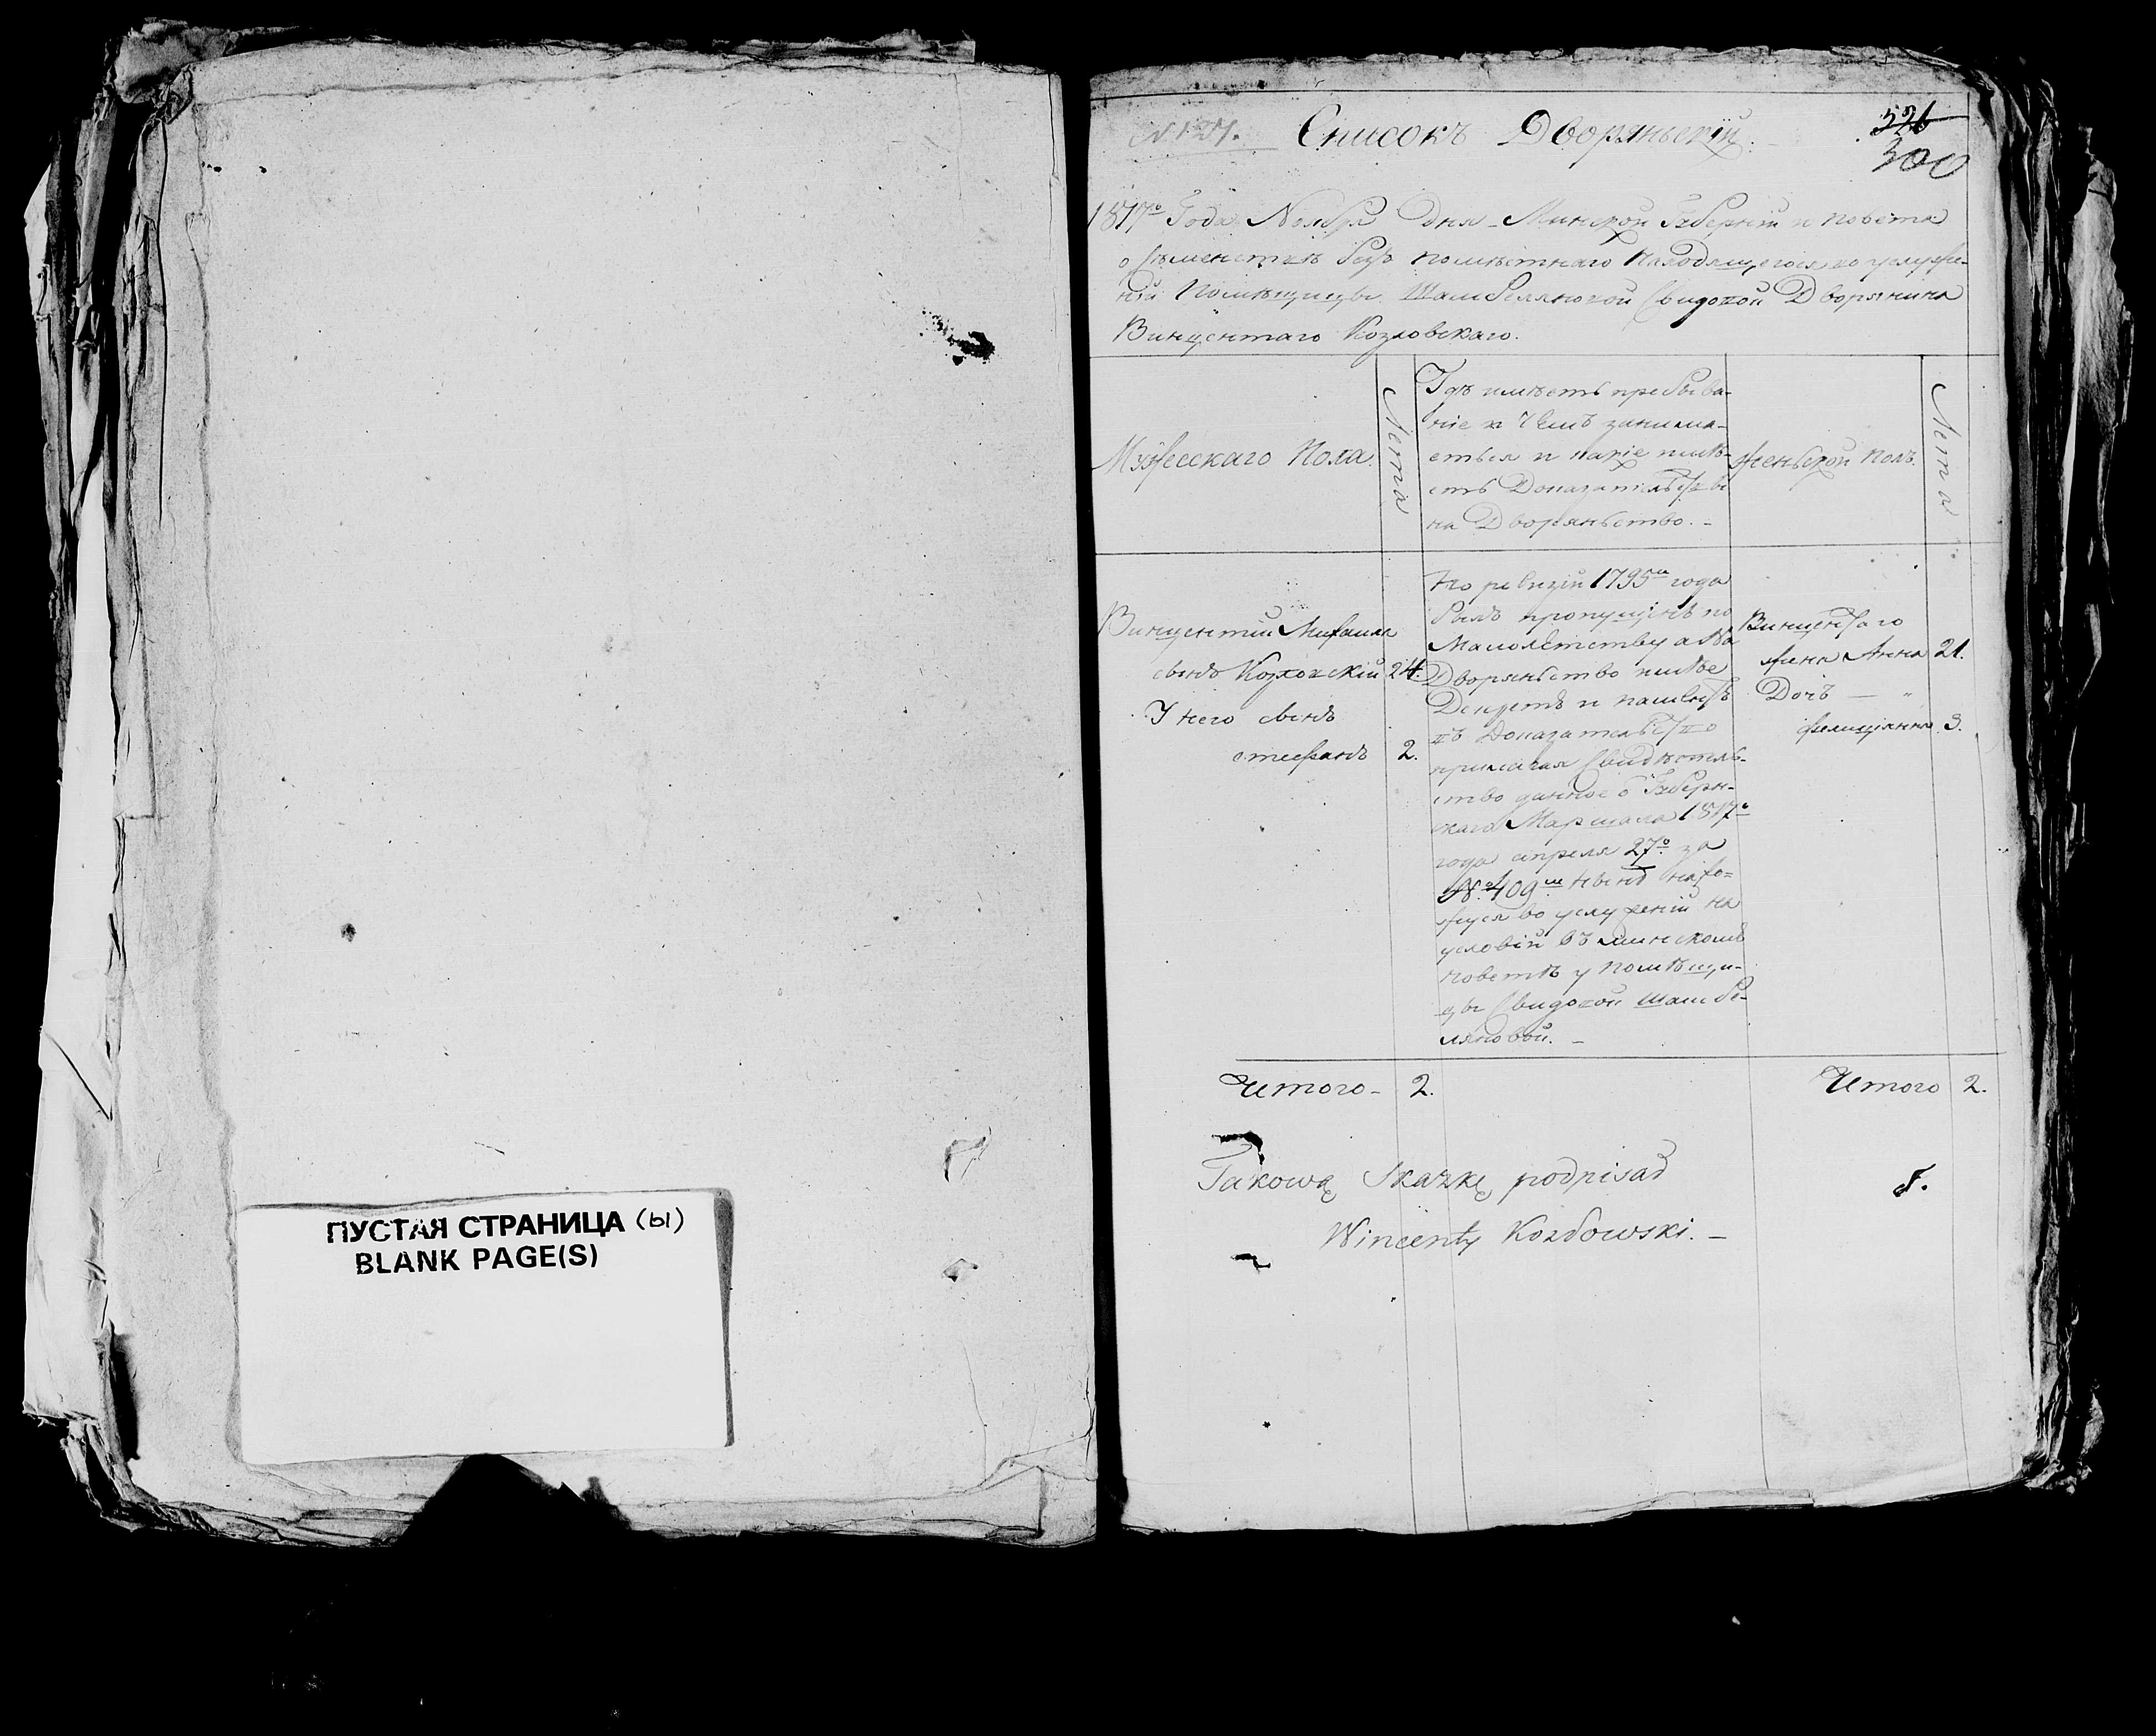 ПУСТАЯ СТРАНИЦА (ы)
BLANK PAGE(S)
Списокъ Дворянскій.
526
300
1817го Года Ноября дня - Минской Губерніи и повета
о семействѣ безъ помѣстнаго находящегося во услуже-
ніи Помѣщицы Шамбеляновой Свидовой Дворянина
Винцентаго Козловскаго.
Мужесскаго Пола
Лета
Гдѣ имѣетъ пребыва-
ніе и Чемъ занима-
еться и какіе имѣ-
етъ Доказательствы
на Дворянство. -
Женьской полъ.
Лета
Винцентій Михаила
сынъ Козловскій 24.
У него сынъ
стефанъ 2.
По ревизіи 1795го года
былъ пропущенъ по
Малолетству а На
Дворянство имѣе
Декретъ и
въ Доказательство
прилагая Свидѣтель-
ство данное о Губерн-
скаго Маршала 1817го
года апреля 27го за
№ 409м нынѣ нахо-
жуся во услуженіи на
условіи въ минскомъ
поветѣ у помѣщи-
цы Свидовой Шамбе-
ляновой. -
Винцентаго
жена Анна 21.
Дочъ — "
Фелиціанна 3.
Итого - 2.
Итого 2.
Takową Skazkę podpisał
Wincenty Kozłowski. -